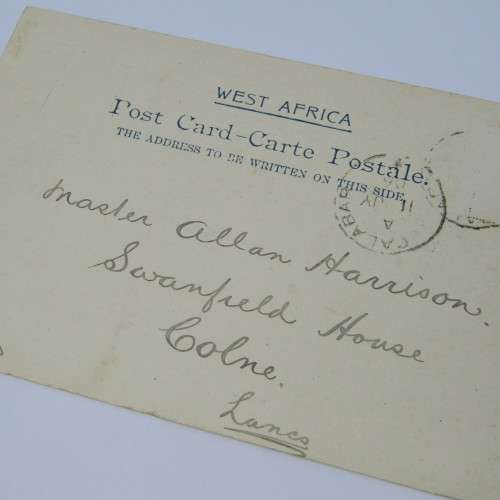 WEST AFRICA
Post Card-Carte Postale.
THE ADDRESS TO BE WRITTEN ON THIS SIDE.
CALABAR
A
11
Master Allan Harrison.
Swanfield House
Colne.
Lancs